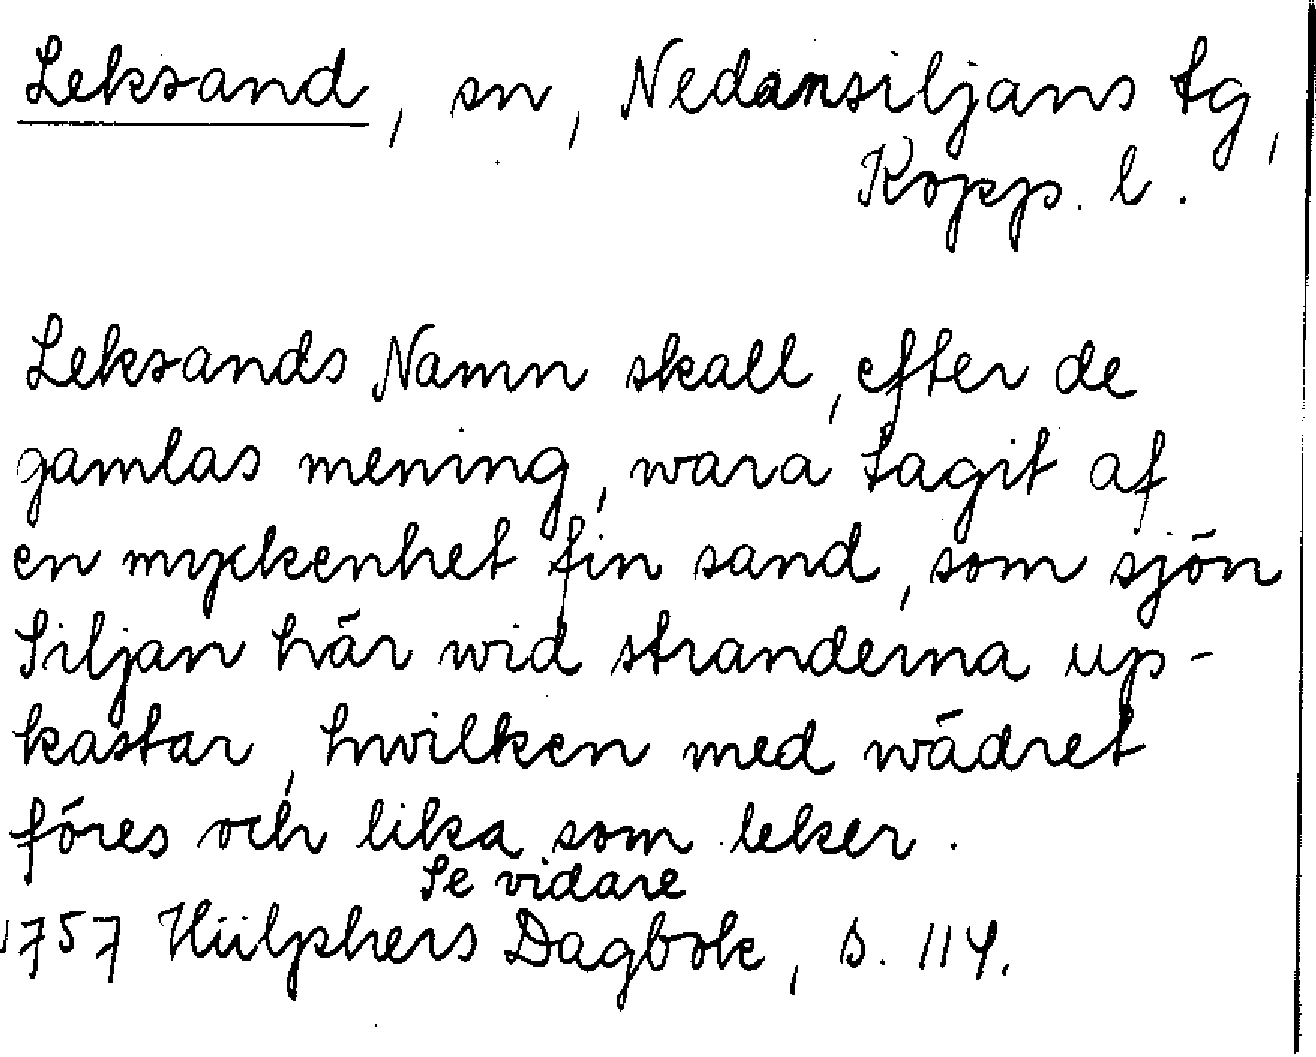 Leksand, sn, Nedansiljans tg,
Kopp. l.
Leksands Namn skall, efter de
gamlas mening, wara tagit af
en myckenhet fin sand, som sjön
Siljan här wid stranderna up-
kastar, hwilken med wädret
föres och lika som leker.
Se vidare
1757 Hülphers Dagbok, s. 114.